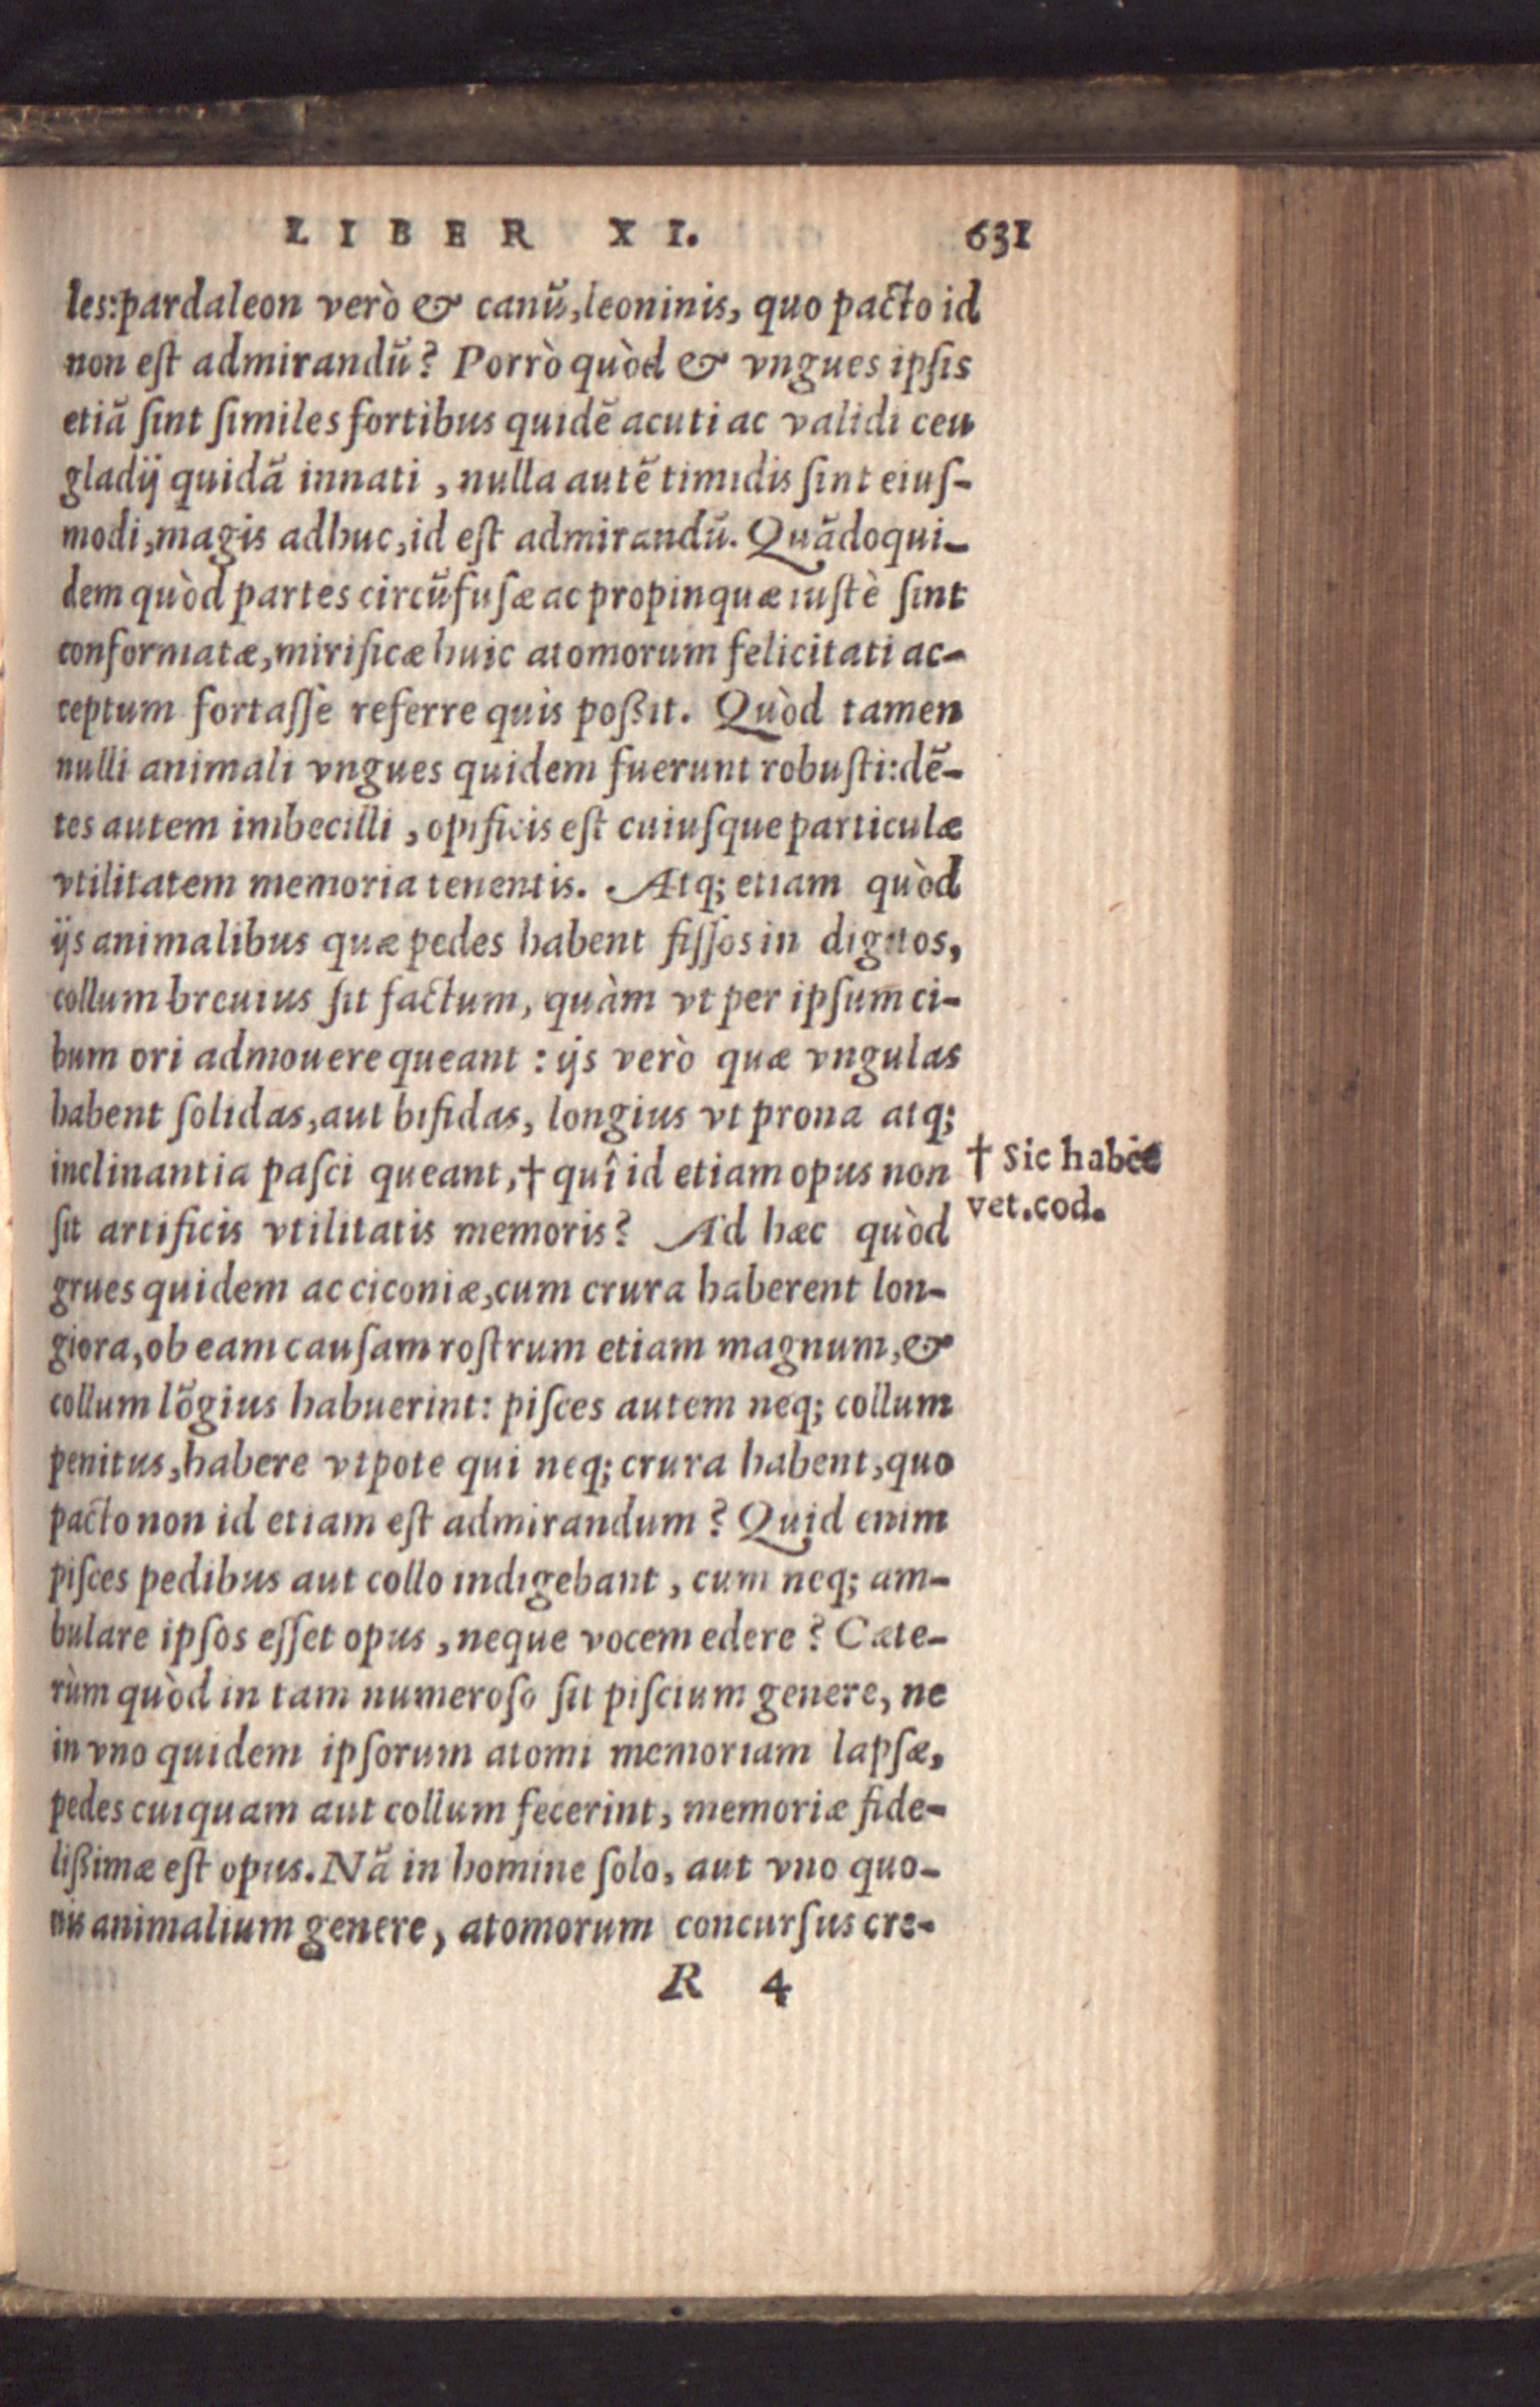 LIBER XI. 631
les:pardaleon verò & canũ,leoninis, quo pacto id
non eſt admirandũ? Porrò quòd & vngues ipſis
etiã ſint ſimiles fortibus quidẽ acuti ac validi ceu
gladij quidã innati , nulla autẽ timidis ſint eiuſ-
modi,magis adhuc,id eſt admirandũ. Quãdoqui-
dem quòd partes circũfuſæ ac propinquæ iuſtè ſint
conformatæ,mirificæ huic atomorum felicitati ac-
ceptum fortaſſè referre quis poßit. Quòd tamen
nulli animali vngues quidem fuerunt robuſti:dẽ-
tes autem imbecilli , opificis eſt cuiuſque particulæ
vtilitatem memoria tenentis. Atq; etiam quòd
ijs animalibus quæ pedes habent fiſſos in digitos,
collum breuius ſit factum, quàm vt per ipſum ci-
bum ori admouere queant : ijs verò quæ vngulas
habent ſolidas,aut bifidas, longius vt prona atq;
inclinantia paſci queant,† quî id etiam opus non
ſit artificis vtilitatis memoris? Ad hæc quòd
grues quidem ac ciconiæ,cum crura haberent lon-
giora,ob eam cauſam roſtrum etiam magnum,&
collum lõgius habuerint: piſces autem neq; collum
penitus,habere vtpote qui neq; crura habent,quo
pacto non id etiam eſt admirandum ? Quid enim
piſces pedibus aut collo indigebant , cum neq; am-
bulare ipſos eſſet opus , neque vocem edere ? Cæte-
rùm quòd in tam numeroſo ſit piſcium genere, ne
in vno quidem ipſorum atomi memoriam lapſæ,
pedes cuiquam aut collum fecerint, memoriæ fide-
lißimæ eſt opus. Nã in homine ſolo, aut vno quo-
uis animalium genere, atomorum concurſus cre-
R 4
† Sic habẽt
vet.cod.